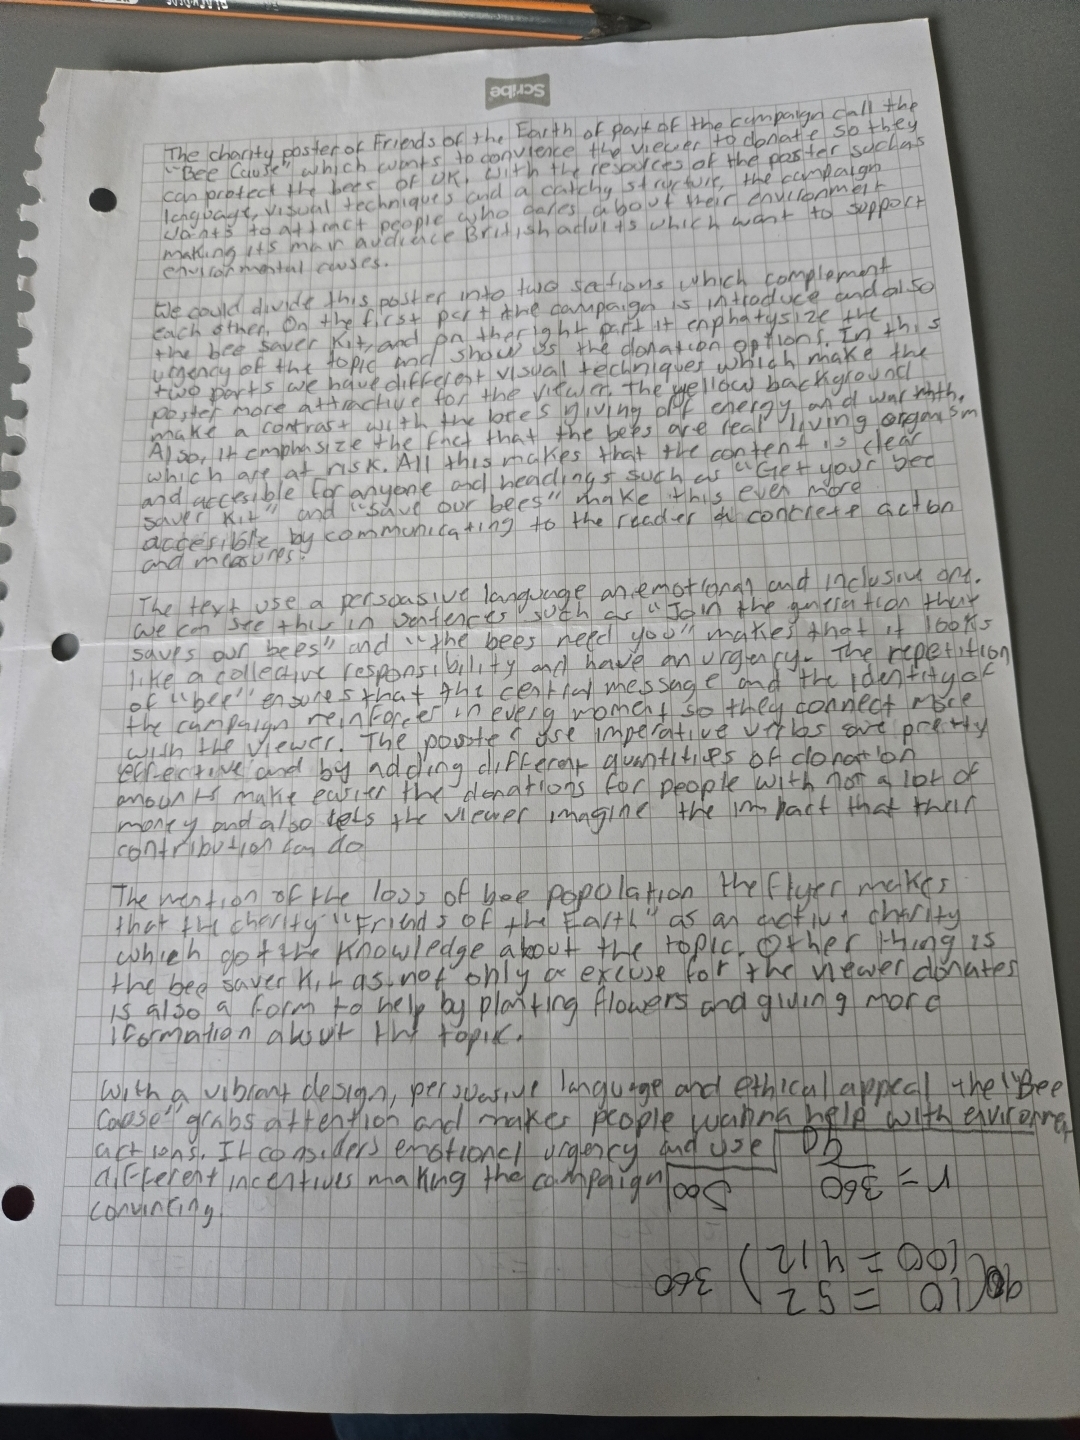 Scribe
The charity poster of Friends of the Earth of part of the campaign call the
"Bee Cause" which wants to convience the viewer to donate so they
can protect the bees of UK. With the resources of the poster such as
language, visual techniques and a catchy structure, the campaign
wants to attract people who cares about their environment
making its main audience British adults which want to support
environmental causes.
We could divide this poster into two sections which complement
each other. On the first part the campaign is introduce and also
the bee saver kit, and on the right part it enphatysize the
urgency of the topic and show us the donation options. In this
two parts we have different visual techniques which make the
poster more attractive for the viewer. The yellow background
make a contrast with the bees giving off energy and warmth.
Also, it emphasize the fact that the bees are real living organism
which are at risk. All this makes that the content is clear
and accesible for anyone and headings such as "Get your bee
saver kit" and "save our bees" make this even more
accesible by communicating to the reader a concrete action
and measures.
The text use a persuasive language an emotional and inclusive one.
We can see this in sentences such as "Join the generation that
saves our bees" and "the bees need you" makes that it looks
like a collective responsibility and have an urgency. The repetition
of "bee" ensures that the central message and the identity of
the campaign reinforces in every moment so they connect more
with the viewer. The poster use imperative verbs are pretty
effective and by adding different quantities of donation
amounts make easier the donations for people with not a lot of
money and also lets the viewer imagine the impact that their
contribution can do
The mention of the loss of bee population the flyer makes
that the charity "Friends of the Earth" as an active charity
which got the knowledge about the topic. Other thing is
the bee saver kit as not only a excuse for the viewer donates
is also a form to help by planting flowers and giving more
iformation about the topic.
With a vibrant design, persuasive language and ethical appeal the "Bee
Cause" grabs attention and makes people wanna help with environmet
actions. It considers emotional urgency and use
different incentives making the campaign
convincing.
90
n = 360
500
100 = 412) 360
90(10 = 52)